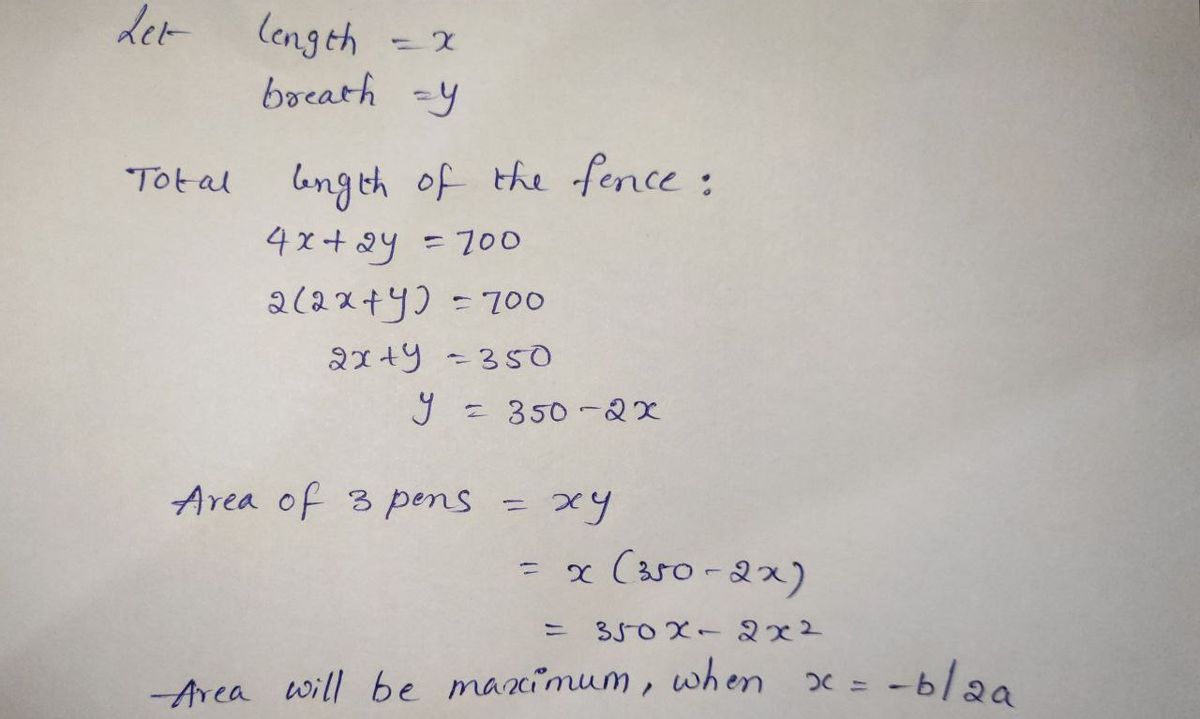 Let length = x
breath = y
Total length of the fence :
4x + 2y = 700
2(2x+y) = 700
2x + y = 350
y = 350 - 2x
Area of 3 pens = xy
= x (350 - 2x)
= 350x - 2x2
Area will be maximum, when x = -b/2a